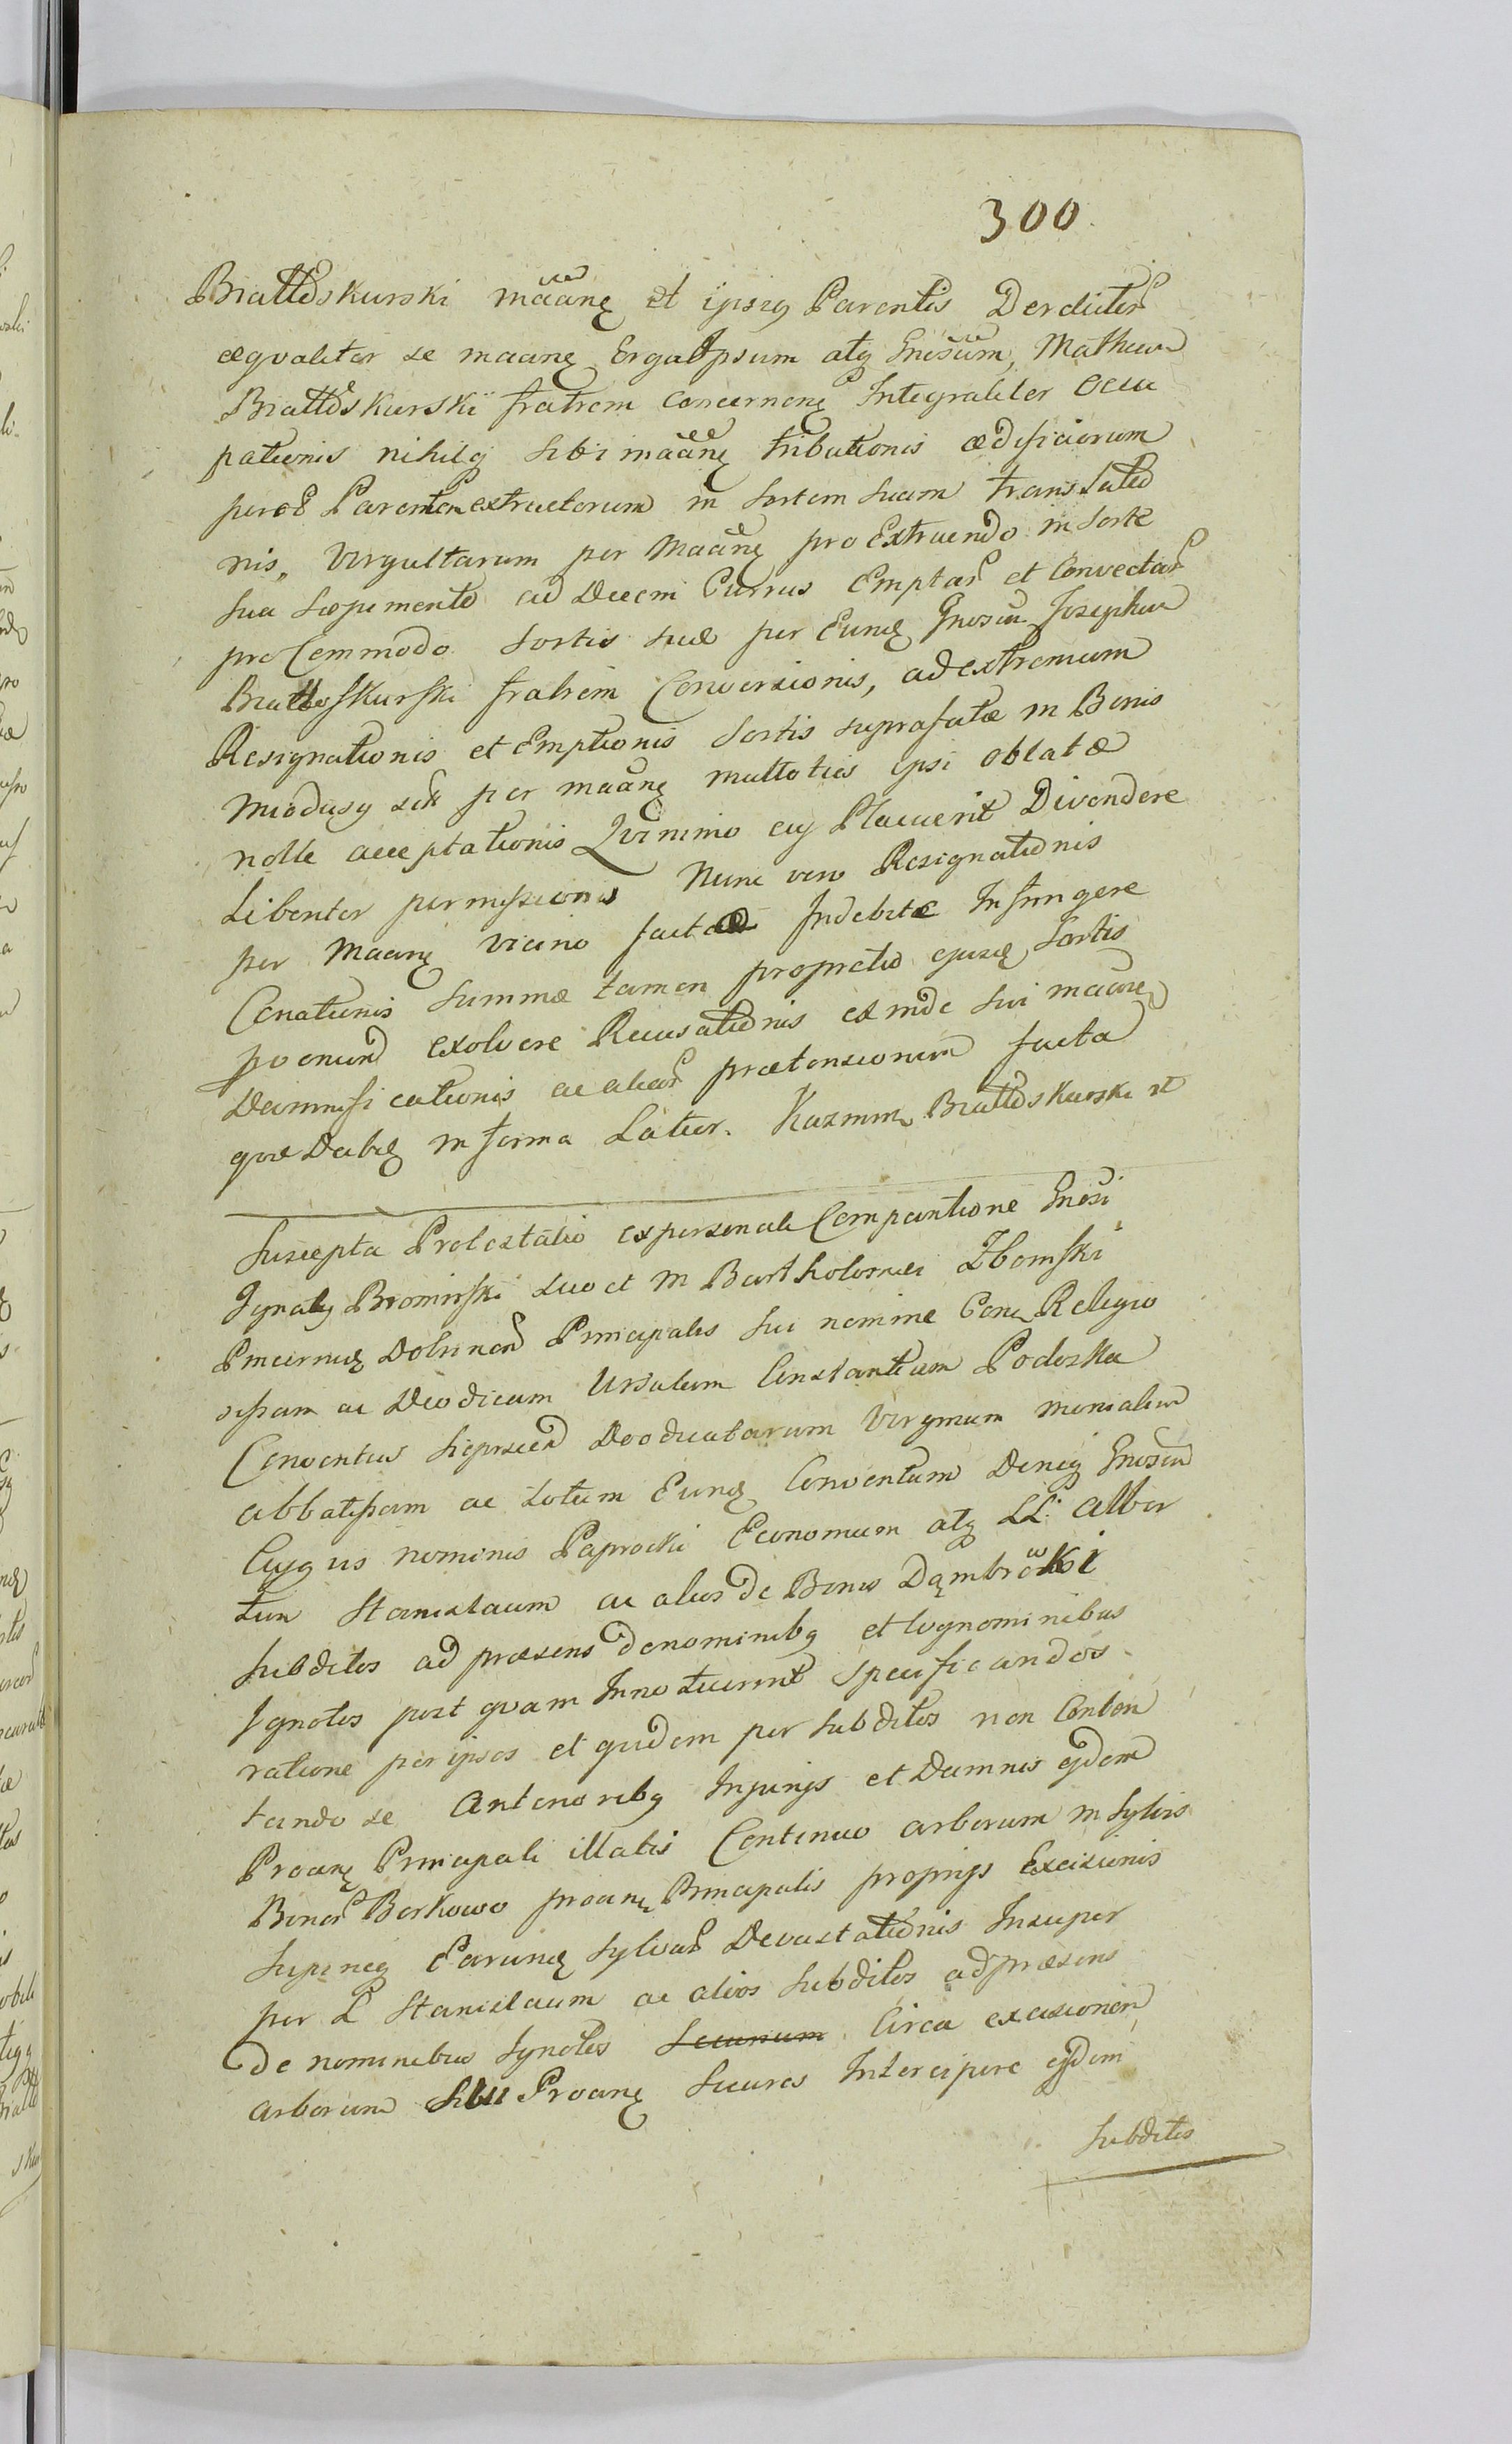 300.
Białłoskurski maane et ipsiq Parentis Derelictor
æqvaliter se maane Erga Ipsum atq Gnosum, Matheum
Białłoskurskï fratrem concernene Integraliter Occu
pationis nihilq sibi maane tribationis ædificiorum
per Parentem extructorum in sortem suam translatio
nis, Virgultarum per Maane pro Extruendo in Sorte
sua Sæpimento ad Decem Currus Emptar et Convectar
pro Commodo Sortis suæ per Eunde Gnosum Josephum
Białłoskurski fratrem Conversionis, ad extremum
Resignationis et Emptionis Sortis suprafatæ in Bonis
Miodusy sitt per maane multoties ipsi oblatæ
nolle acceptationis Qvinimo cuj Placuerit Divendere
Libenter permissionis Nunc vero Resignationis
per Maane vicino factæ Indebitæ Infringere
Conationis Summæ tamen pro pretio ejusde Sortis
poenund Exolvere Recusationis ex inde sui maane
Damnificationis ac aliar prætensionum facta
qvæ Dabiq in forma Latior. Kazimirz Białłoskurski rt
Suscepta Protestatio ex personali Compantione Gnosi
Ignatij Bromirski suo et M Bartholomæi Zbomski
Pincernide Dobrinen Principalis sui nomine Conq Religio
sissam ac Deodicam Ursulam Constantiam Podoska
Conventus Sieprcen Deodicatarum Virginum Monialium
abbatissam ac totum Eunde Conventum Deniq Gnosum
Cujqvis nominis Paprocki Economum atq LL. Alber
tum Stanislaum ac alios de Bonis Dąmbrówki
Subditos ad præsens de nominibq et Cognominibus
Ignotos post qvam Innotuerint specificandos
ratione per ipsos et qvidem per subditos non Conten
tando se Anterioribq Injurijs et Damnis ejdem
Proane Principali illatis Continuo arborum in Sylvis
Bonor Borkowo proane Principalis proprijs Excisionis
Supineq Earunde Sylvar Devastationis Insuper
per L Stanislaum ac alios Subditos ad præsens
de nominibus Ignotos Circa excisionem
arborum Sibi Proane Secures Intercipere ejdem
Subditis